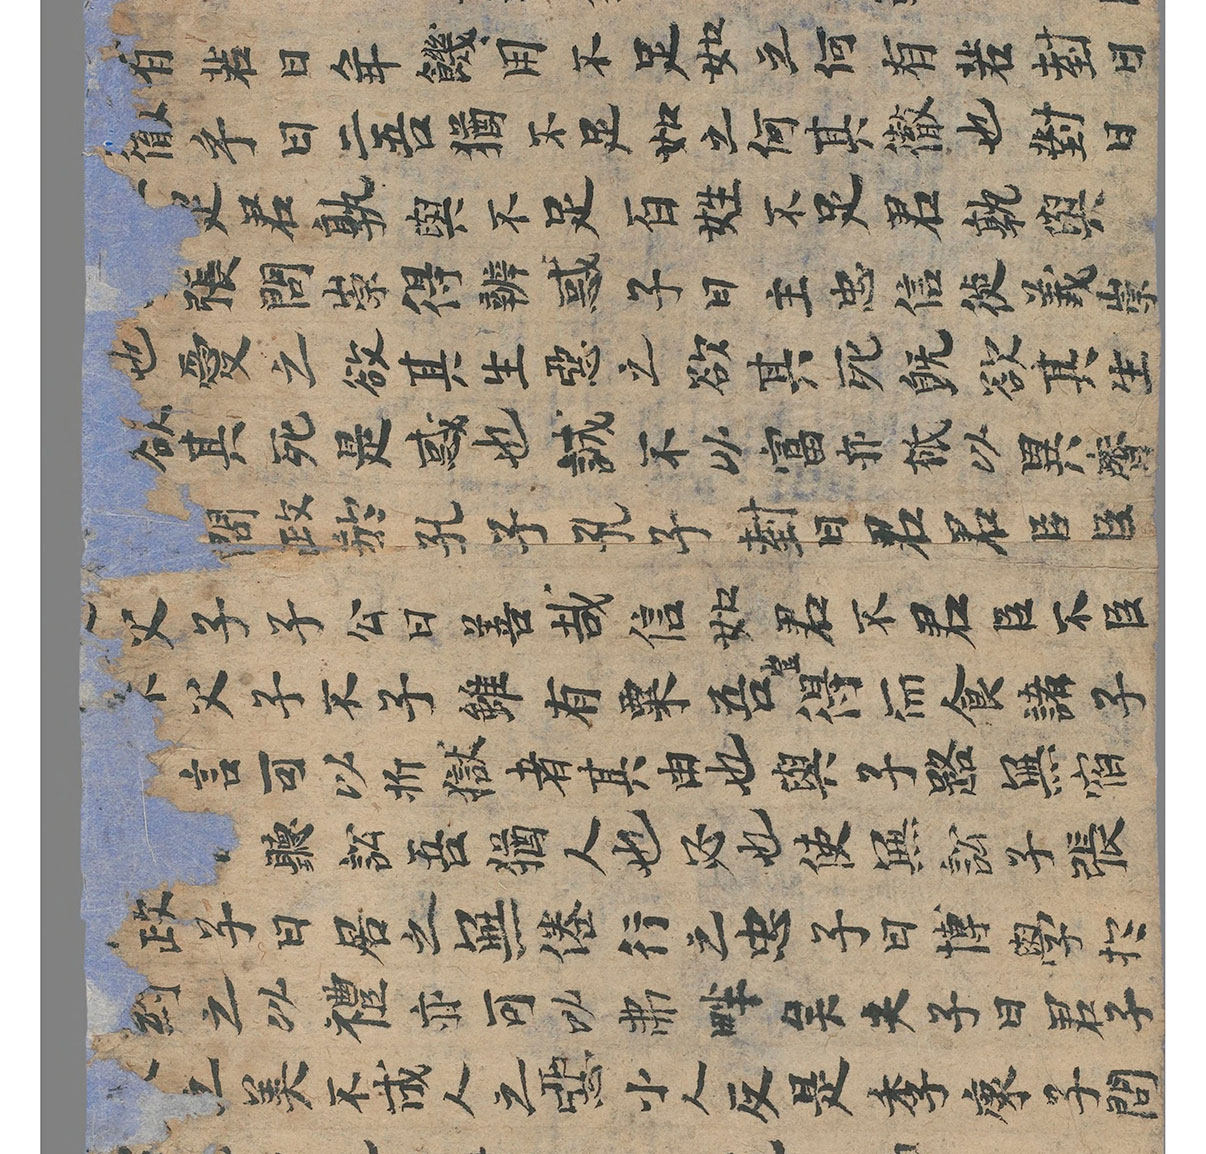 有若曰年饑用不足如之何有若對曰
徹乎曰二吾猶不足如之何其徹也對曰
足君孰與不足百姓不足君孰與
張問崇得辨惑子曰主忠信徙義崇
也愛之欲其生惡之欲其死既欲其生
欲其死是惑也誠不以富亦祇以異齊
問政於孔子孔子對曰君君臣臣
父子子公曰善哉信如君不君臣不臣
不父子不子雖有粟吾豈得而食諸子
言可以折獄者其由也與子路無宿
聽訟吾猶人也必也使無訟子張
政子曰居之無倦行之忠子曰博學扵
約之以禮亦可以弗畔矣夫子曰君子
之美不成人之惡小人反是季康子問